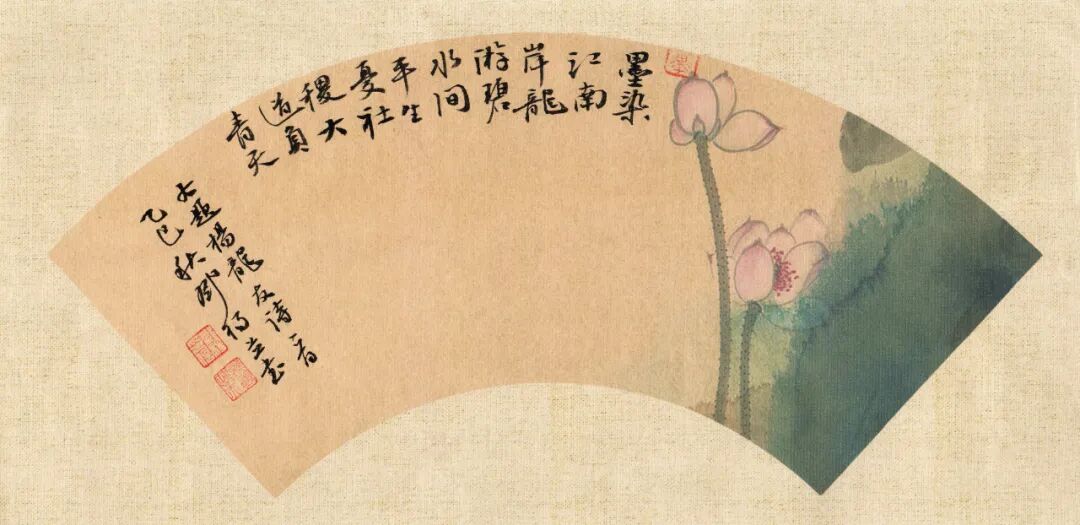 墨染
江南
岸龍
游碧
水间
平生
憂社
稷大
道負
青天
右題楊龍友詩一首
乙巳秋鄧書